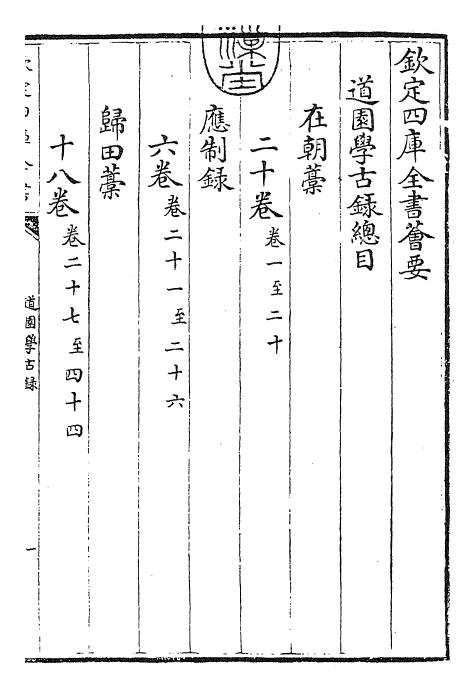 欽定四庫全書薈要
道園學古錄總目
在朝藁
二十卷 卷一至二十
應制録
六卷 卷二十一至二十六
歸田藁
十八卷 卷二十七至四十四
道園學古錄
一